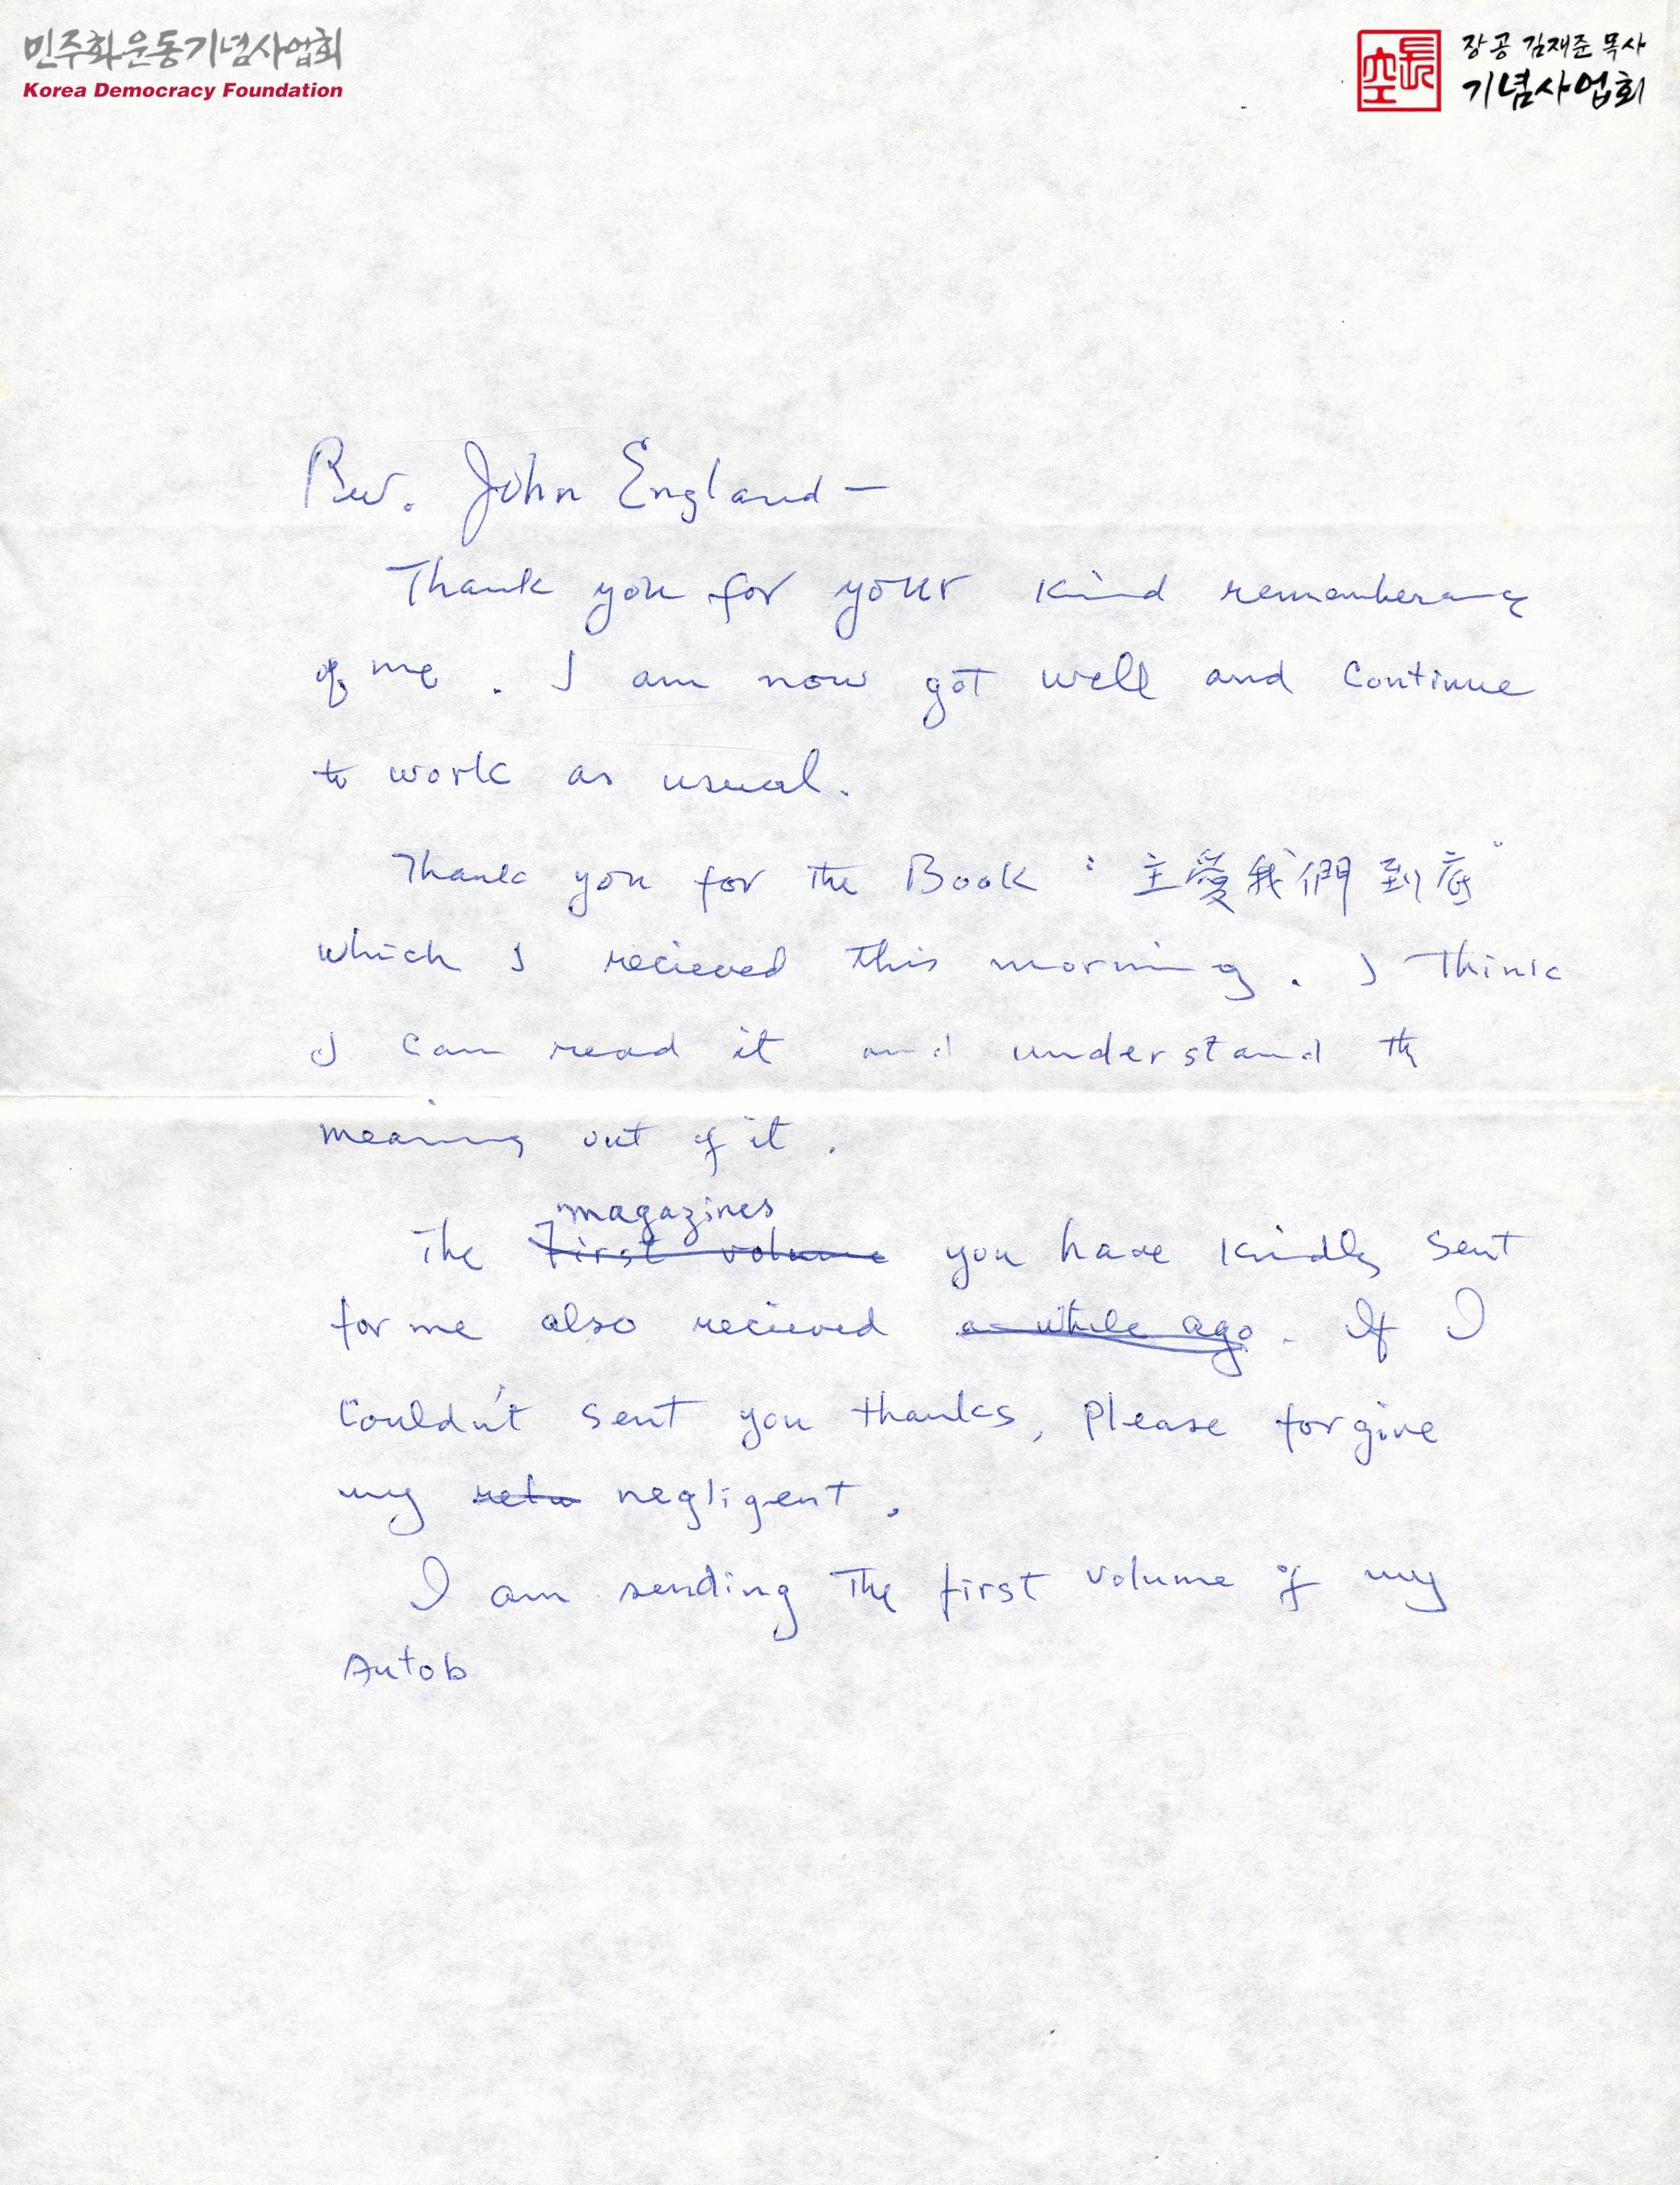 민주화운동기념사업회
Korea Democracy Foundation
長空
장공 김재준 목사
기념사업회
Rev. John England —
Thank you for your kind rememberance
of me. I am now got well and continue
to work as usual.
Thank you for the Book "主愛我們到底"
which I recieved this morning. I think
I can read it and understand the
meaning out of it.
magazines
The first volume you have kindly sent
for me also recieved a while ago. If I
couldn't sent you thanks, please forgive
my retu negligent.
I am sending the first volume of my
Autob